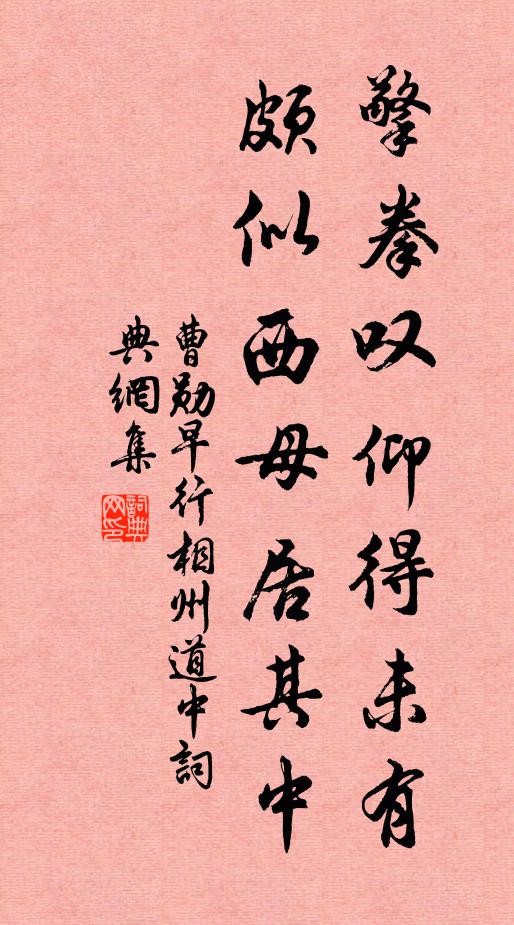 擎拳叹仰得未有
颇似西母居其中
曹勋早行相州道中詞
典網集
詞典
网印